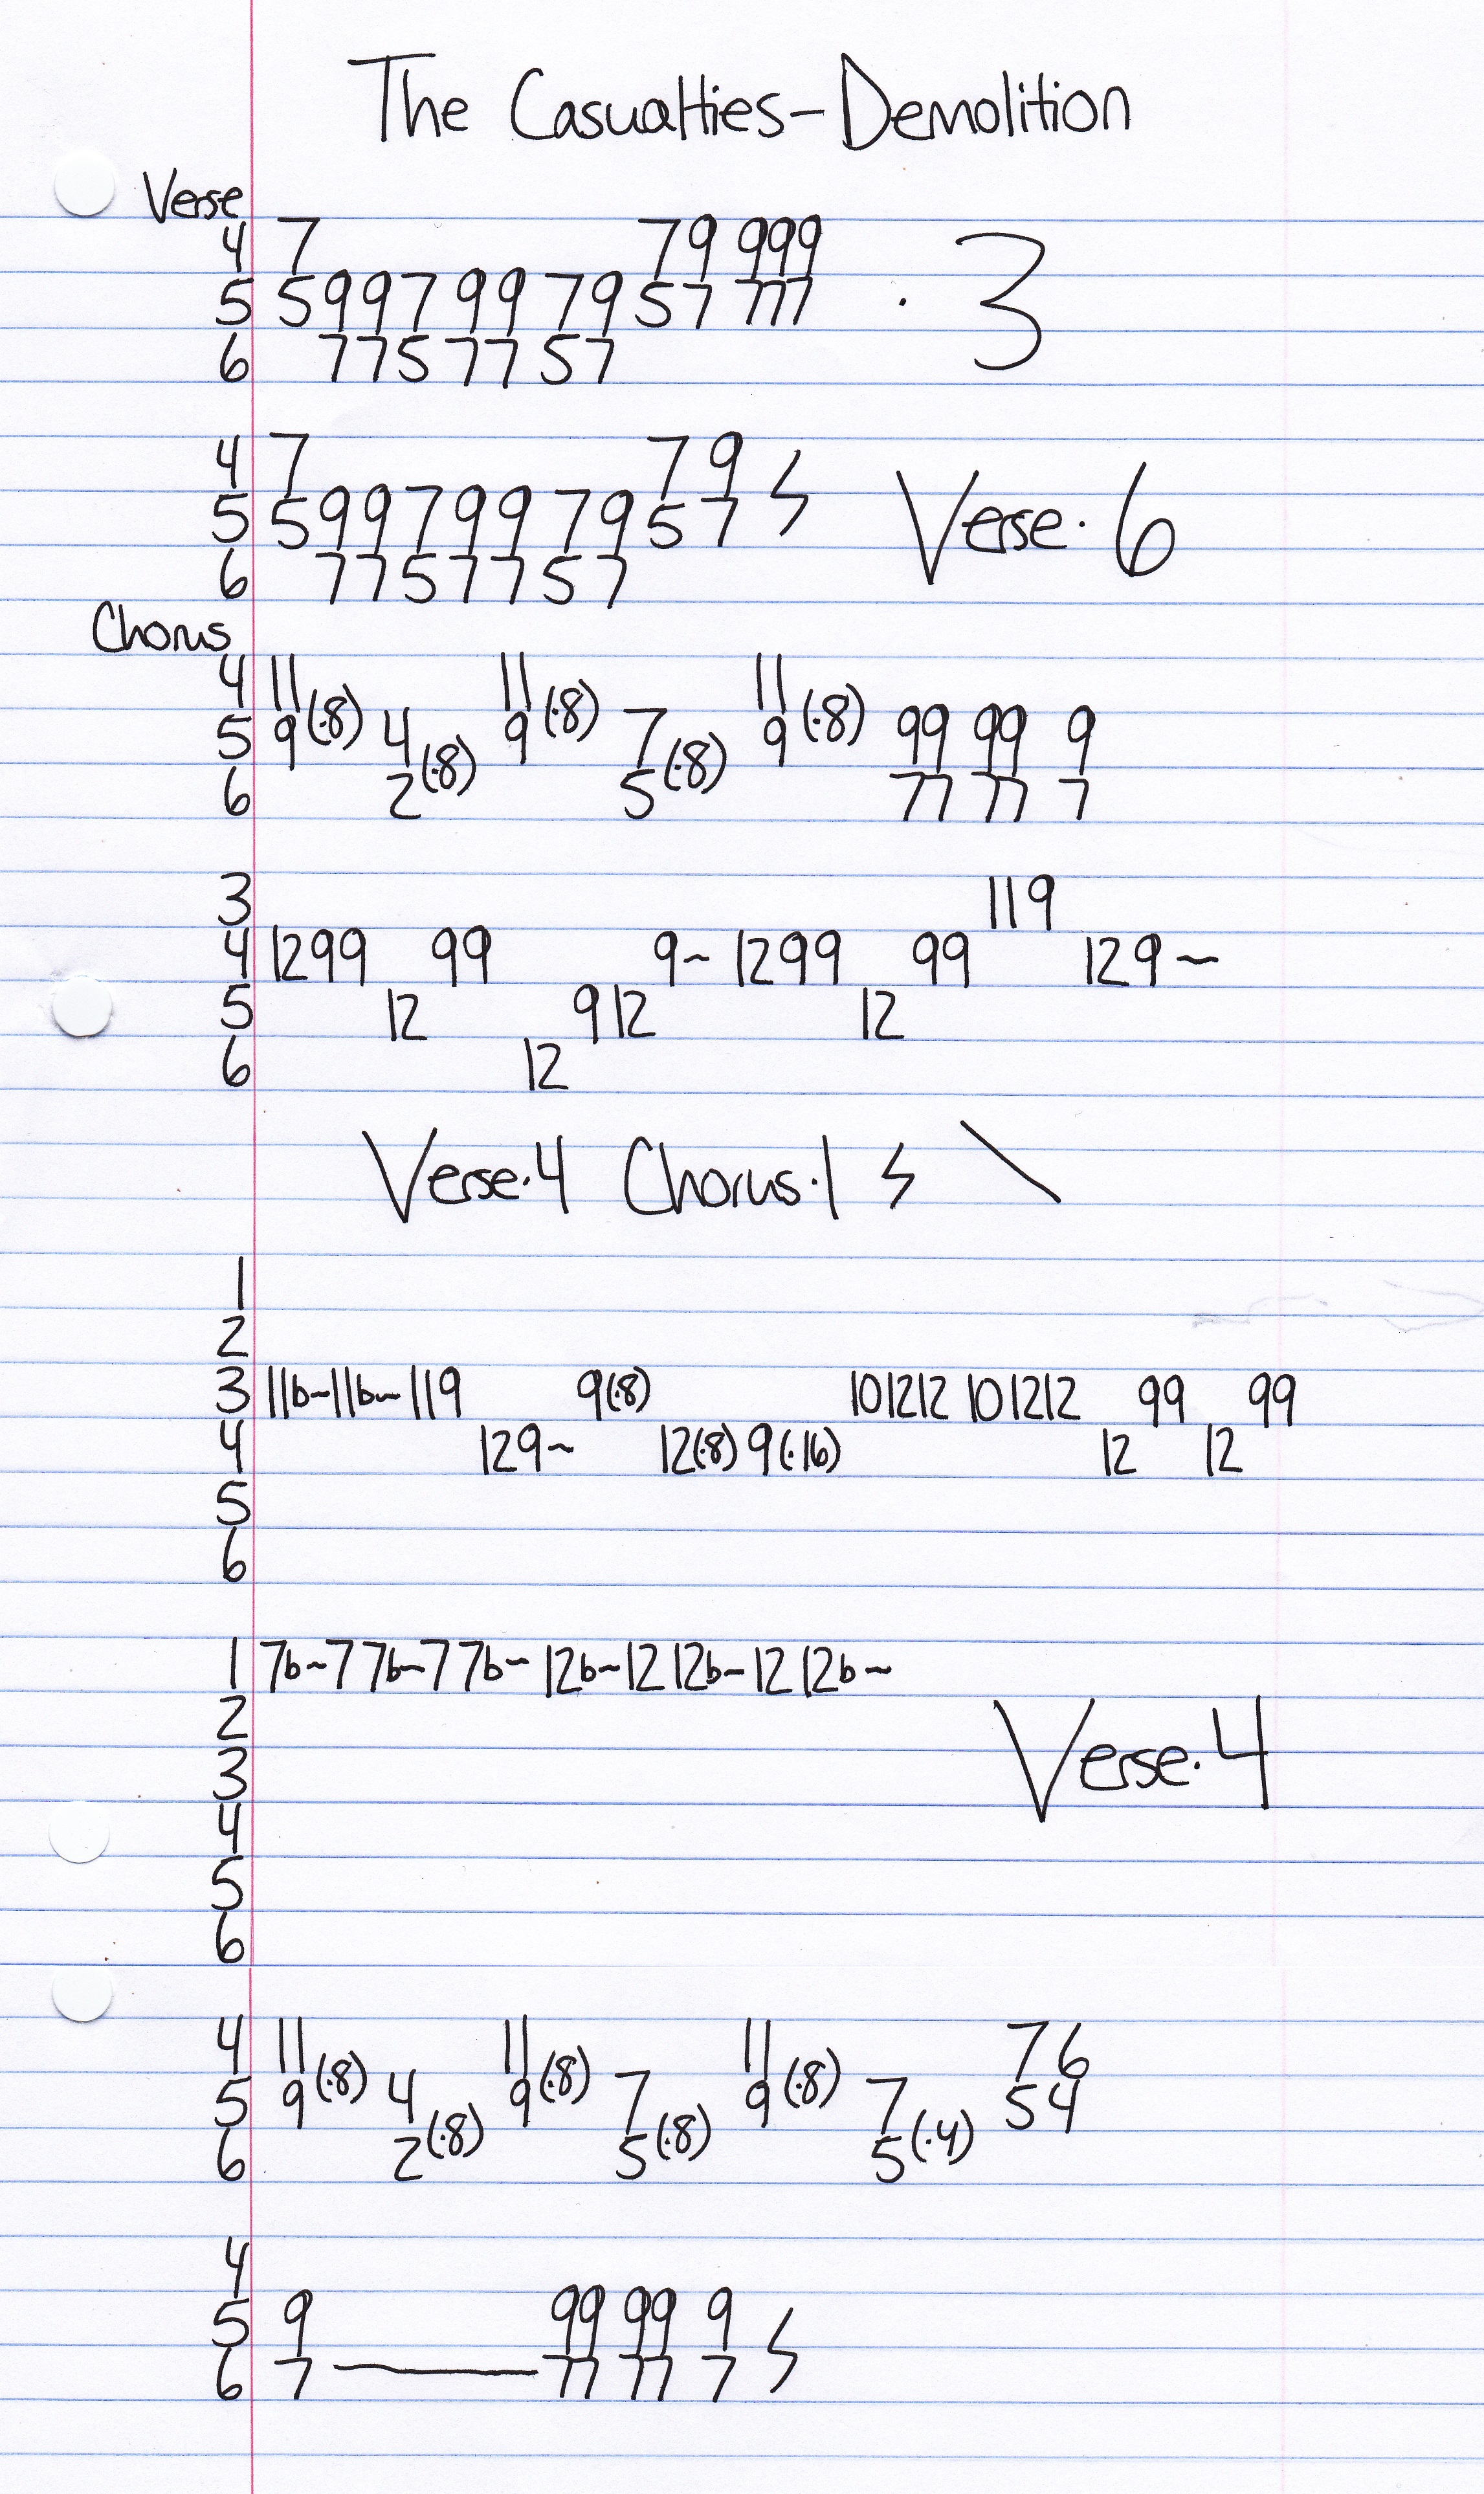 The Casualties-Demolition
Verse
4 7 79 999
5 599799 79 57 777 · 3
6 77577 57
4 7 79
5 599799 79 57 Verse·6
6 77577 57
Chorus
4 11 11 11
5 9(·8) 4 9(·8) 7 9(·8) 99 99 9
6 2(·8) 5(·8) 77 77 7
3 119
4 1299 99 9~ 1299 99 129~
5 12 912 12
6 12
Verse·4 Chorus·1 \
1
2
3 11b~11b~119 9(·8) 101212 101212 99 99
4 129~ 12(·8) 9(·16) 12 12
5
6
1 7b~7 7b~7 7b~ 12b~12 12b~12 12b~
2
3 Verse·4
4
5
6
4 11 11 11 76
5 9(·8) 4 9(·8) 7 9(·8) 7 54
6 2(·8) 5(·8) 5(·4)
4
5 9 99 99 9
6 7 — 77 77 7